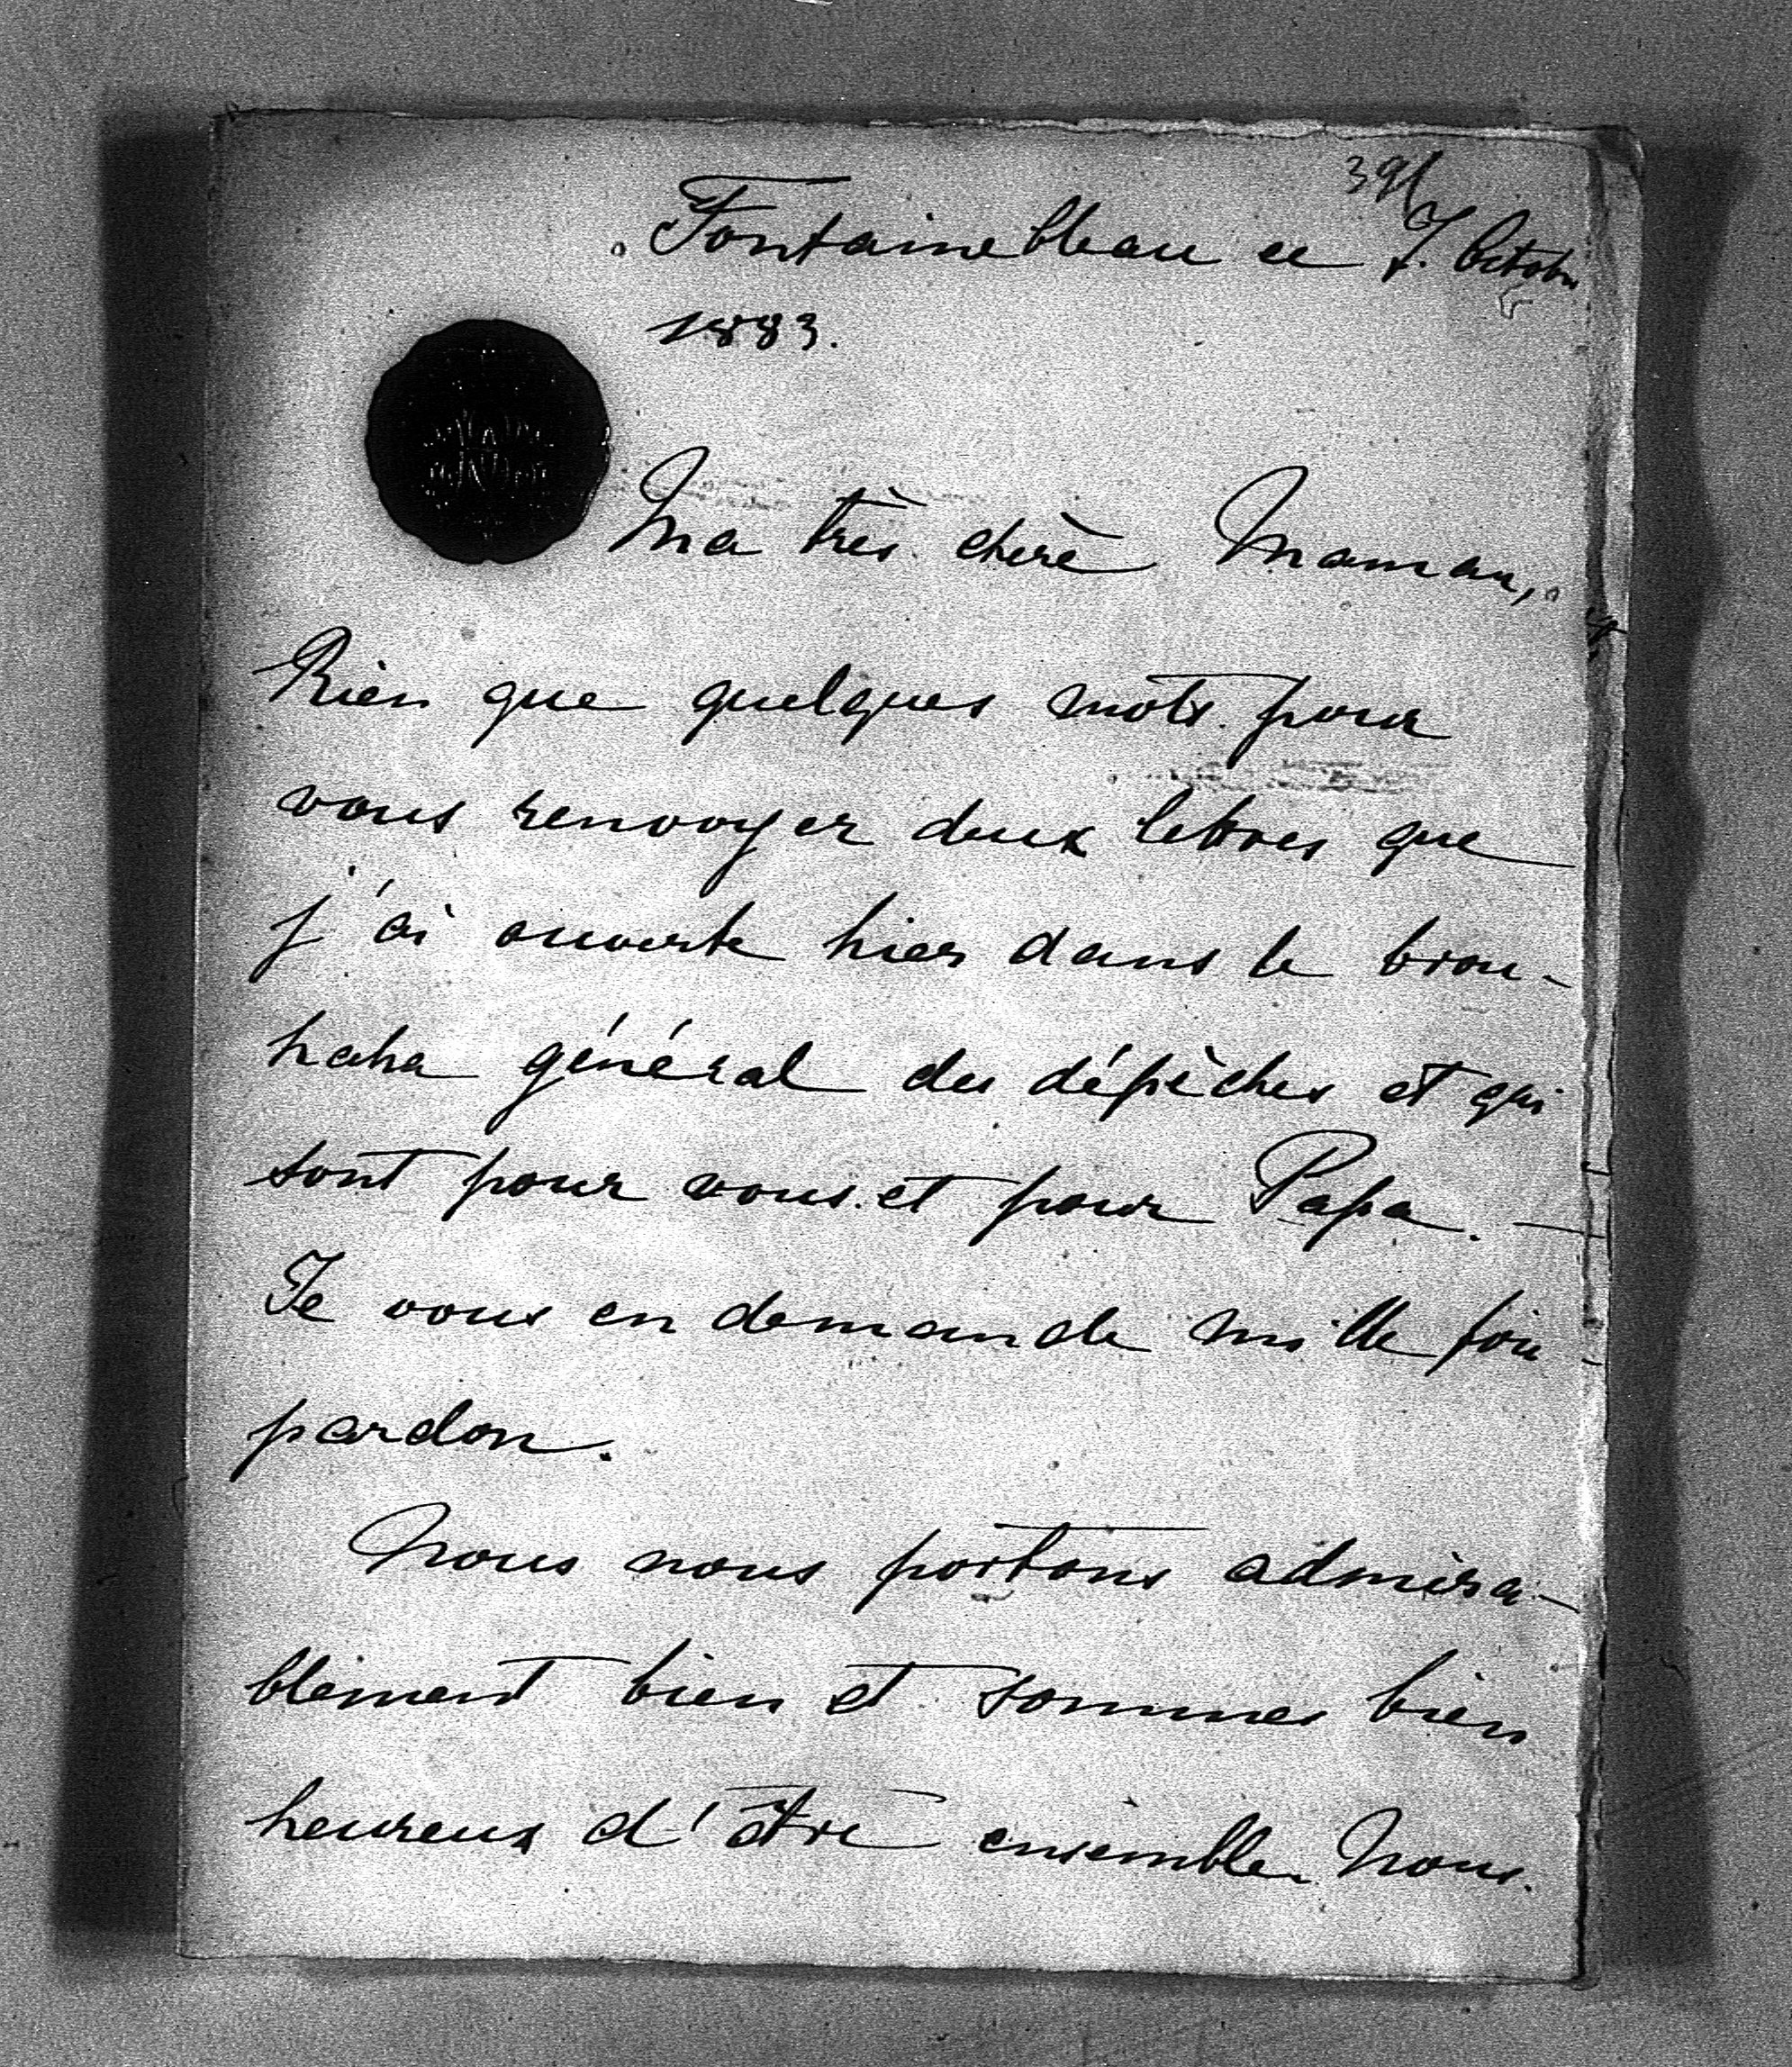 391
Fontainebleau ce 7. Octobre
1883.
Ma très chère Maman,
Rien que quelques mots pour
vous renvoyer deux lettres que
j'ai ouverte hier dans le brou-
haha général des dépèches et qui
sont pour vous et pour Papa. —
Je vous en demande mille fois
pardon.
Nous nous portons admira-
blement bien et sommes bien
heureux d'être ensemble. Nous